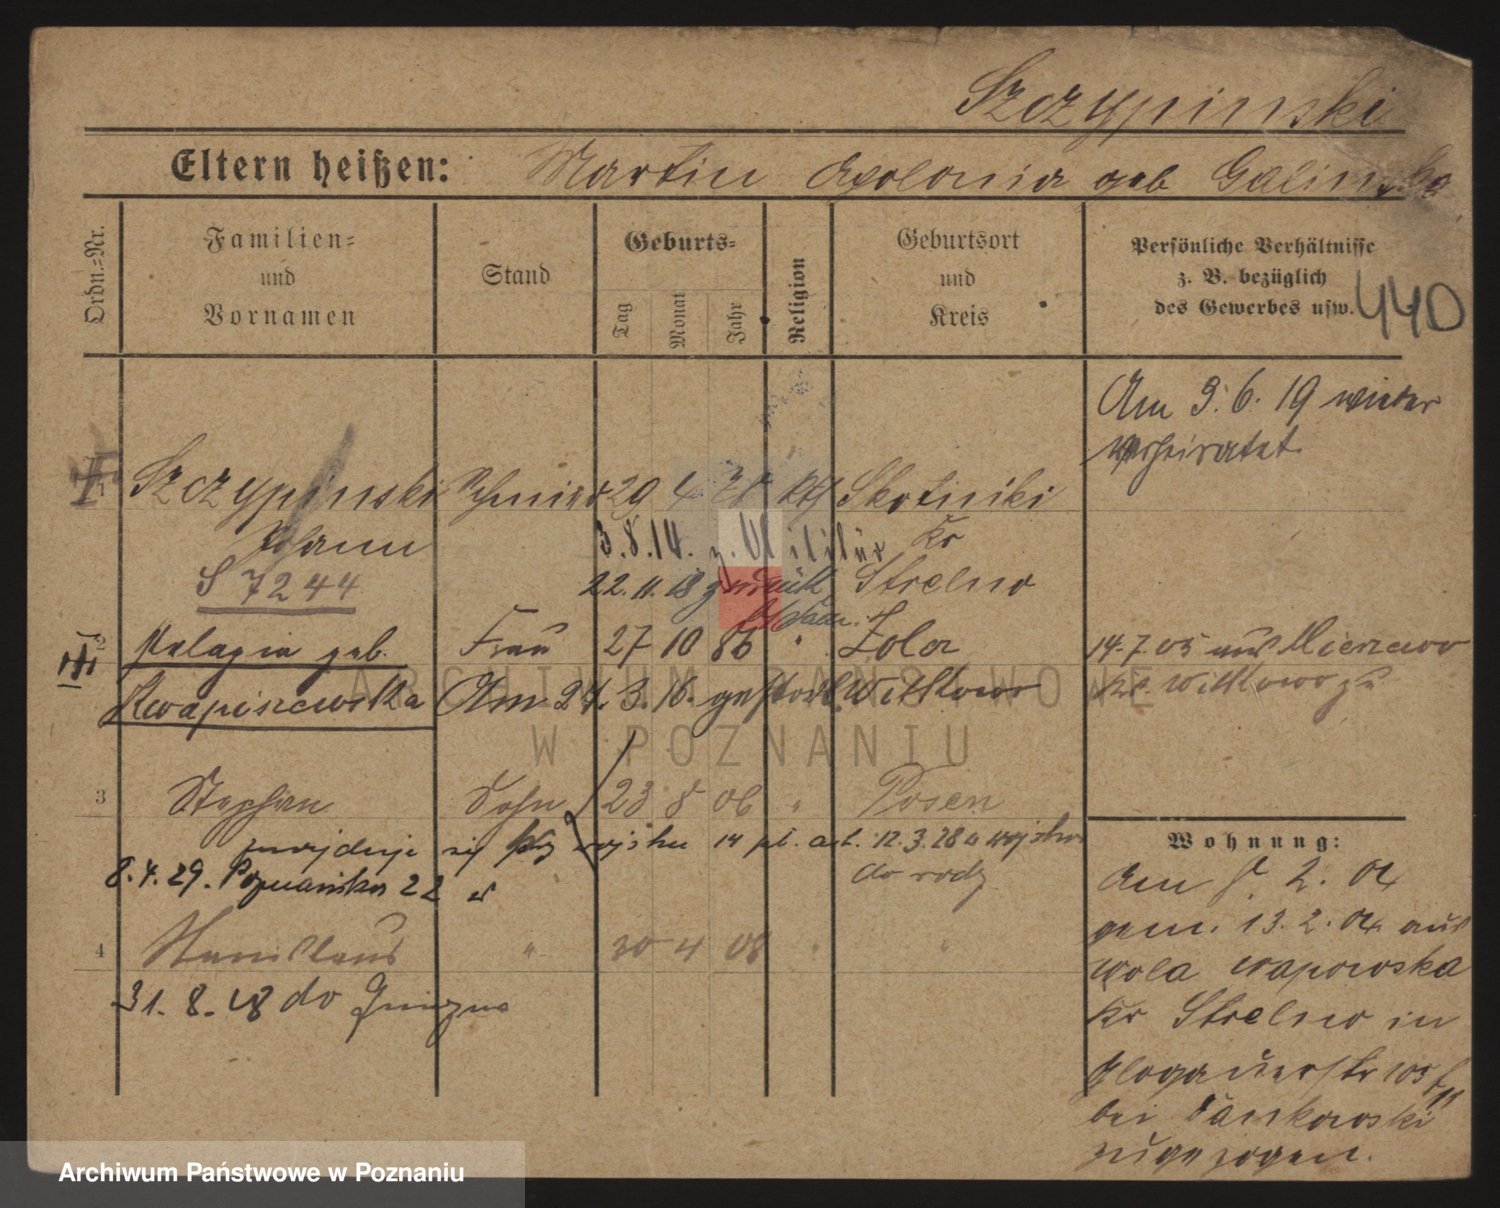 Szczypinski
Eltern heißen: Martin Apolonia geb Galinska
Ordn.-Nr.
Familien-
und
Vornamen
Stand
Geburts-
Tag
Monat
Jahr
Religion
Geburtsort
und
Kreis
Persönliche Verhältnisse
z. B. bezüglich
des Gewerbes usw.
440
Am 9. 6. 19 wieder
verheiratet
1 Szczypinski Schmied 29 4 kth Skotniki
Johann
3.8.14. z. Militär Kr
S 7244
22.11.18 zurück Strelno
2 Pelagia geb. Frau 27 10 86 " Zola
14.7.05 aus Mierzewo
Kwapiszewska Am 24. 3. 16. gestorb. Witkowo
Kr. Witkowo zu
3 Stephan Sohn 23 8 06 " Posen
znajduje się przy wojsku 14 12.3.28 z wojska
do rodz
8.4.29. Poznańska 22
4 Stanislaus " 30 4 08 " "
31. 8. 28 do Gniezna
Wohnung:
Am 8. 2. 04
gem. 13. 2. 04 aus
Wola wapowska
Kr Strelno in
Glogauerstr 103
bei Jankowski
zugezogen.
ARCHIWUM PAŃSTWOWE
W POZNANIU
Archiwum Państwowe w Poznaniu